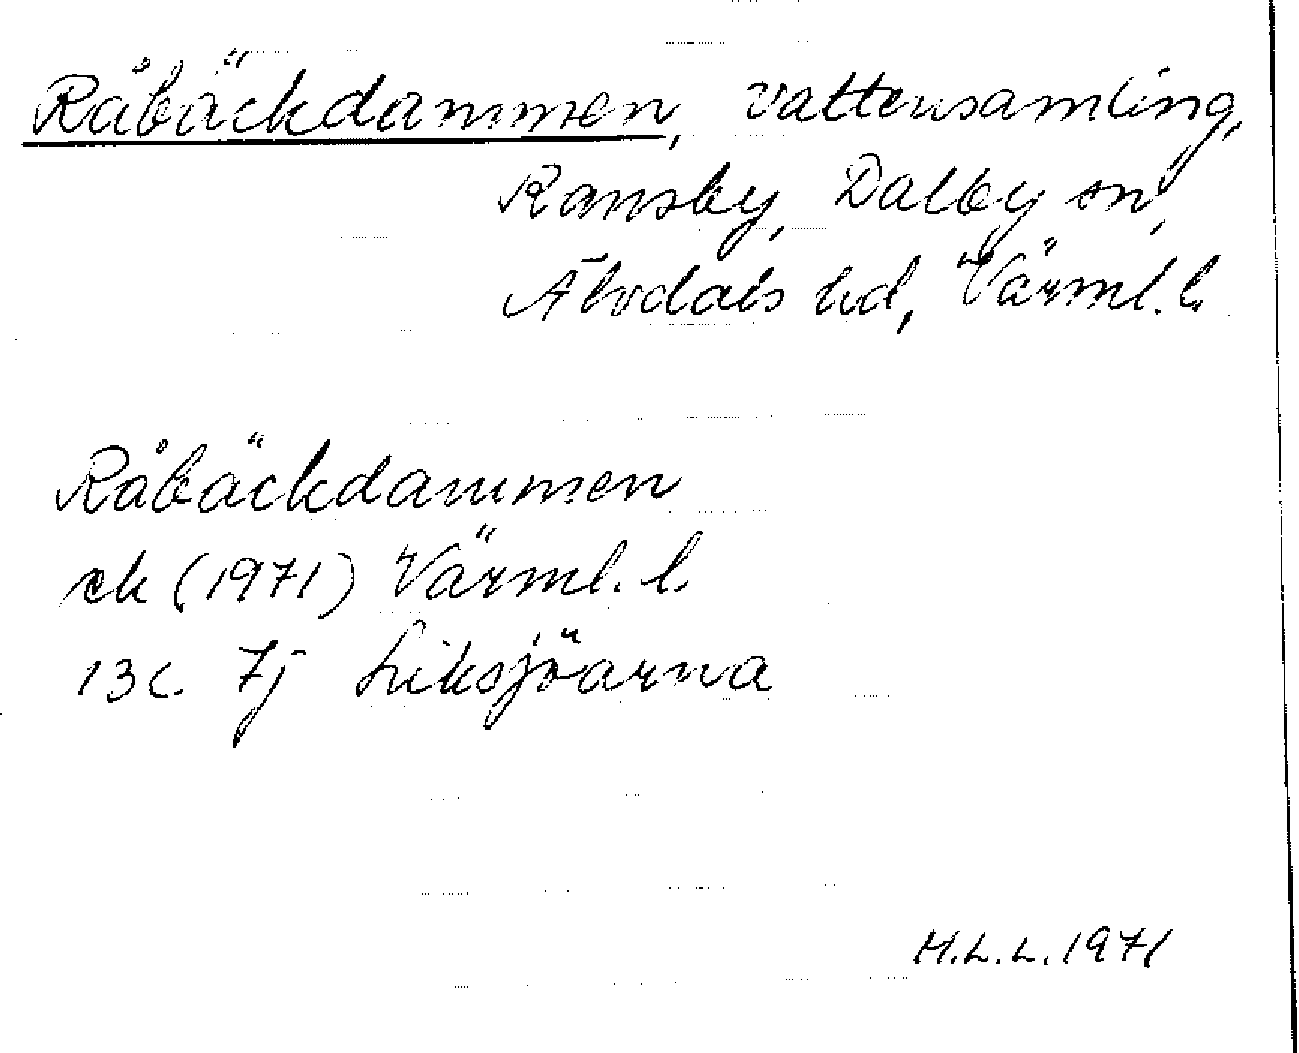 Råbäckdammen, vattensamling,
Ransby, Dalby sn,
Älvdals hd, Värml. l.
Råbäckdammen
ek (1971) Värml. l.
13 c. 7j Liksjöarna
H.L.L. 1971